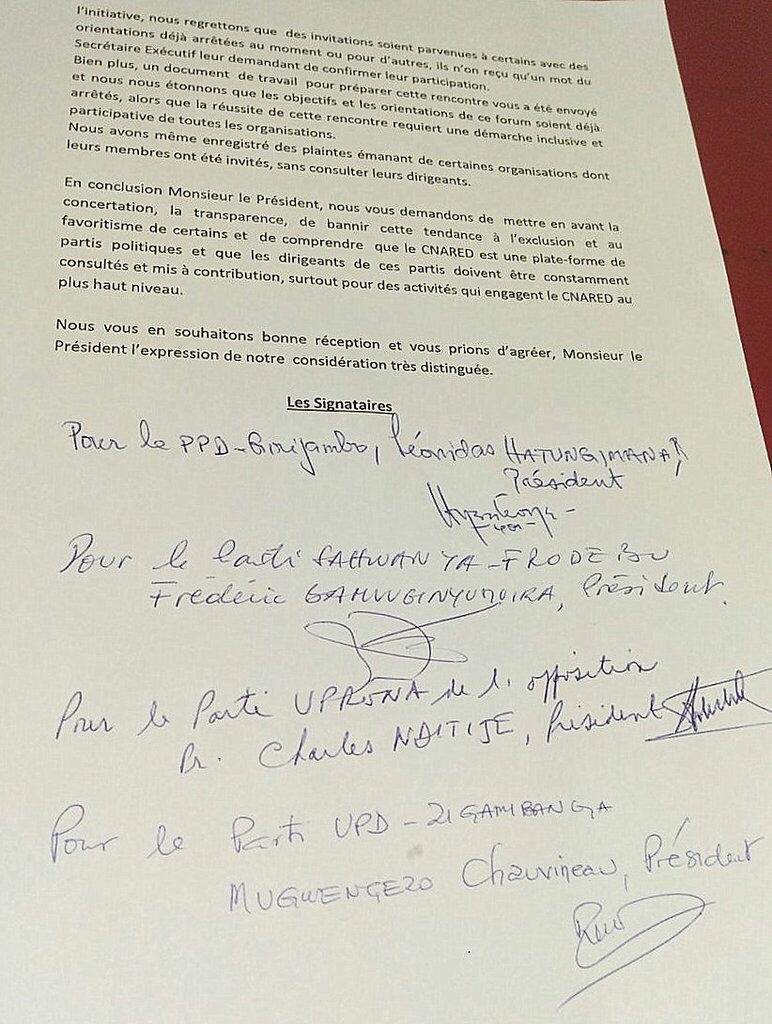 l'initiative, nous regrettons que des invitations soient parvenues à certains avec des
orientations déjà arrêtées au moment ou pour d'autres, ils n'on reçu qu'un mot du
Secrétaire Exécutif leur demandant de confirmer leur participation.
Bien plus, un document de travail pour préparer cette rencontre vous a été envoyé
et nous nous étonnons que les objectifs et les orientations de ce forum soient déjà
arrêtés, alors que la réussite de cette rencontre requiert une démarche inclusive et
participative de toutes les organisations.
Nous avons même enregistré des plaintes émanant de certaines organisations dont
leurs membres ont été invités, sans consulter leurs dirigeants.
En conclusion Monsieur le Président, nous vous demandons de mettre en avant la
concertation, la transparence, de bannir cette tendance à l'exclusion et au
favoritisme de certains et de comprendre que le CNARED est une plate-forme de
partis politiques et que les dirigeants de ces partis doivent être constamment
consultés et mis à contribution, surtout pour des activités qui engagent le CNARED au
plus haut niveau.
Nous vous en souhaitons bonne réception et vous prions d'agréer, Monsieur le
Président l'expression de notre considération très distinguée.
Les Signataires
Pour le PPD-Girijambo, Léonidas HATUNGIMANA
Président
Pour le Parti SAHWANYA-FRODEBU
Frédéric BAMVUGINYUMVIRA, Président.
Pour le Parti UPRONA de l'opposition
Pr. Charles NDITIJE, Président
Pour le Parti UPD-ZIGAMIBANGA
MUGWENGEZO Chauvineau, Président